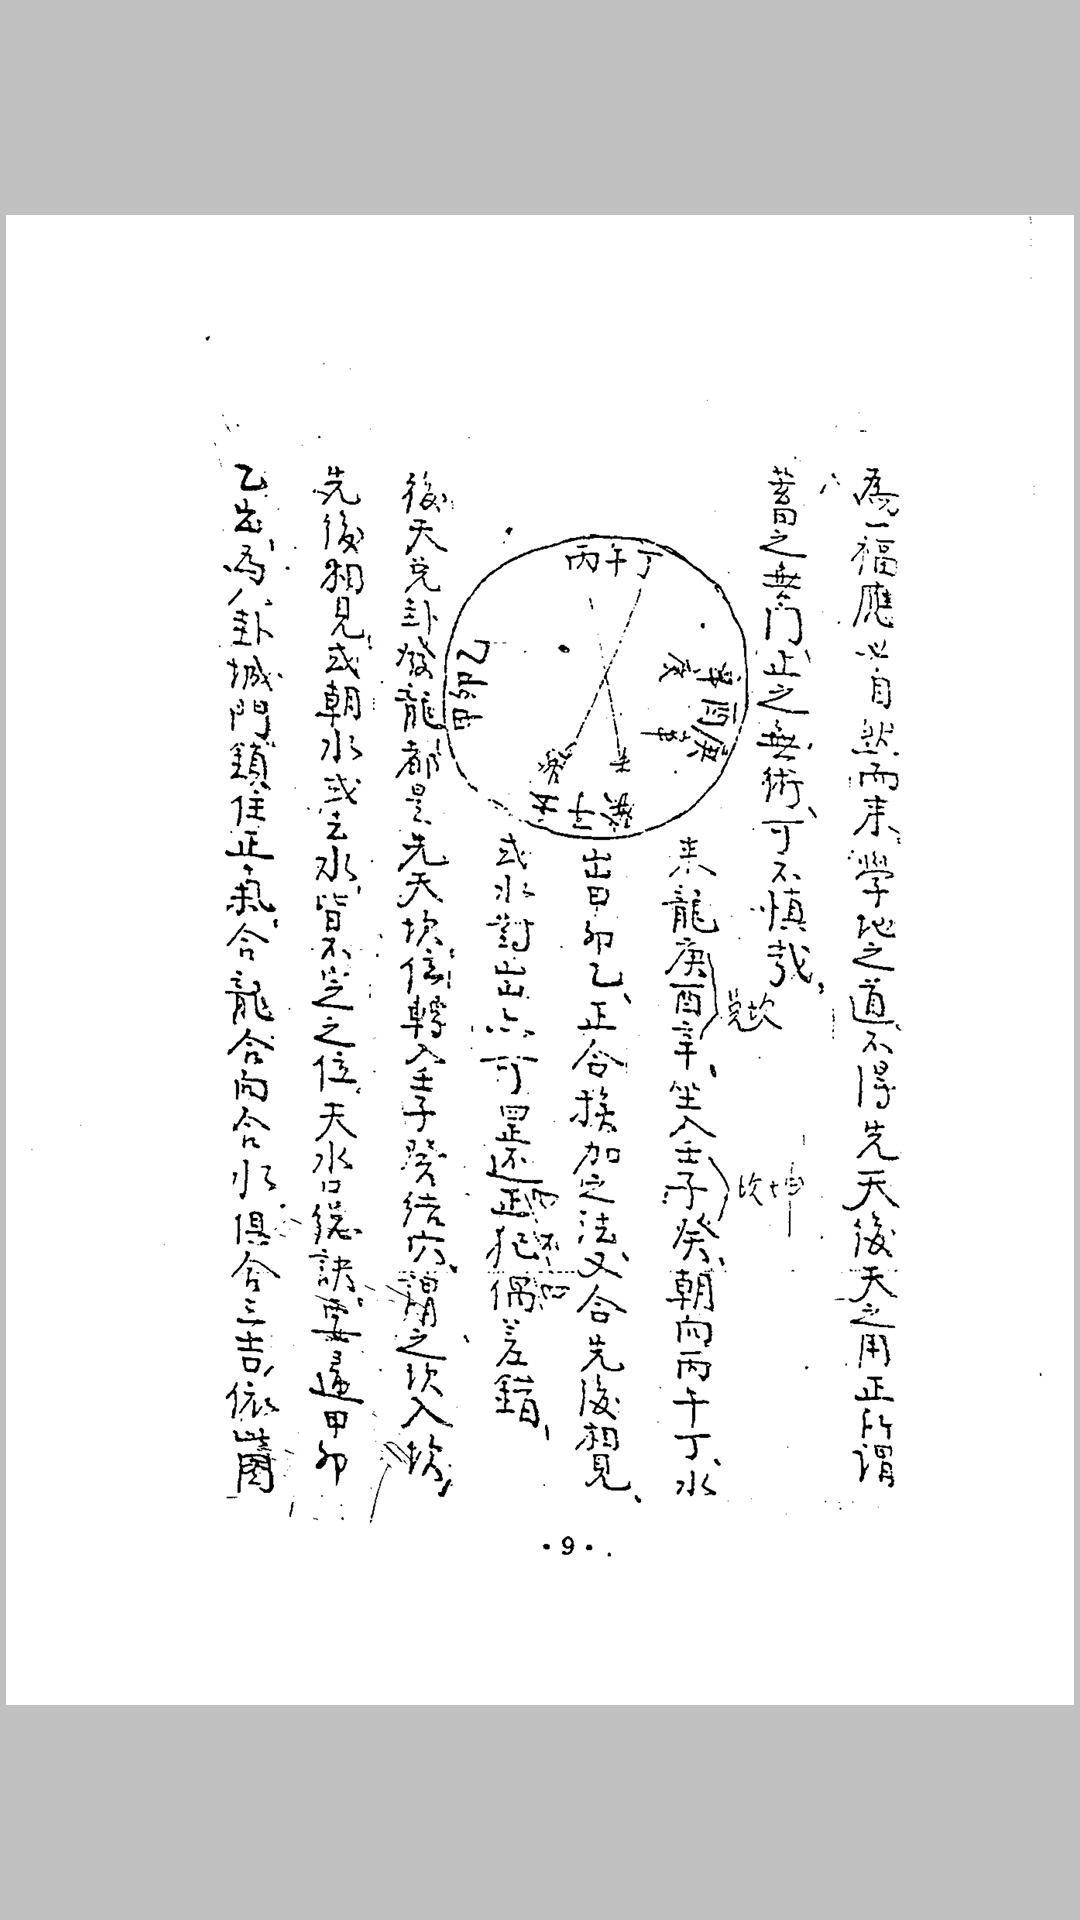 為一福應必自然而来、學地之道、不得先天後天之用正所謂
蓄之無門、止之無術、可不慎哉、
来龍庚酉辛、坐入壬子癸、朝向丙午丁、水
兌坎
坎坤
出甲卯乙、正合挨加之法、又合先後相見、
或水對出亦可罡还正犯偶差錯、
丙午丁
乙卯甲
辛酉庚
癸子壬
後天兌卦發龍、都是先天坎位、轉入壬子癸結穴、謂之坎入坎、
先後相見、或朝水或去水、皆不
之位、天水口総訣、要
甲卯
乙出、為八卦城門鎖住正氣、合龍合向合水、俱合三吉、依
圖
·9·